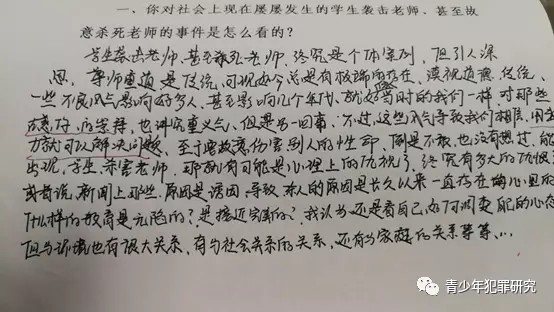 一、你对社会上现在屡屡发生的学生袭击老师、甚至故
意杀死老师的事件是怎么看的?
学生袭击老师,甚至杀死老师,终究是个体案列,但引人深
思,尊师重道是传统,可现如今总是有极端存在,漠视道德、传统、
一些不良风气影响好多人,甚至影响几个年代,就好当时的我们一样 对那些
的崇拜,也讲究重义气,但是另一回事,不过,这些风气导致我们相信,用
方就可以解决问题,至于害别人的性命,倒是不敢,也没有想过,能
出现,学生杀害老师,那就有可能是心理上的仇视了,终究有多大的仇恨
或者说,新闻上那些,原因是诱因,导致杀人的原因是长久以来一直存在内心里的
什么样的教育是无限的?是接近完美的?我认为还是看自己,如何调整自己的心态
但与环境也有很大关系,有与社会关系的关系,还有与家庭的关系等等...
青少年犯罪研究